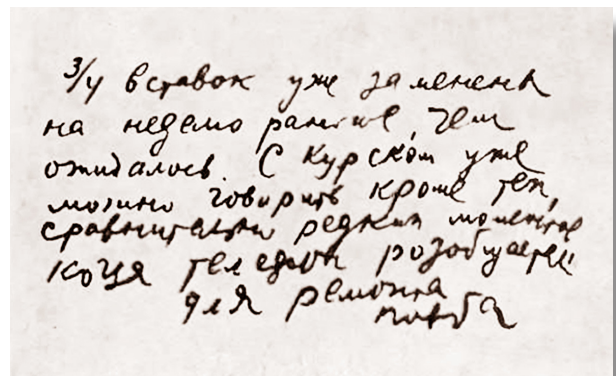 3/4 вставок уже заменена
на неделю раньше, чем
ожидалось. С Курском уже
можно говорить кроме тех,
сравнительно редких моментов
когда телефон разобщается
для ремонта